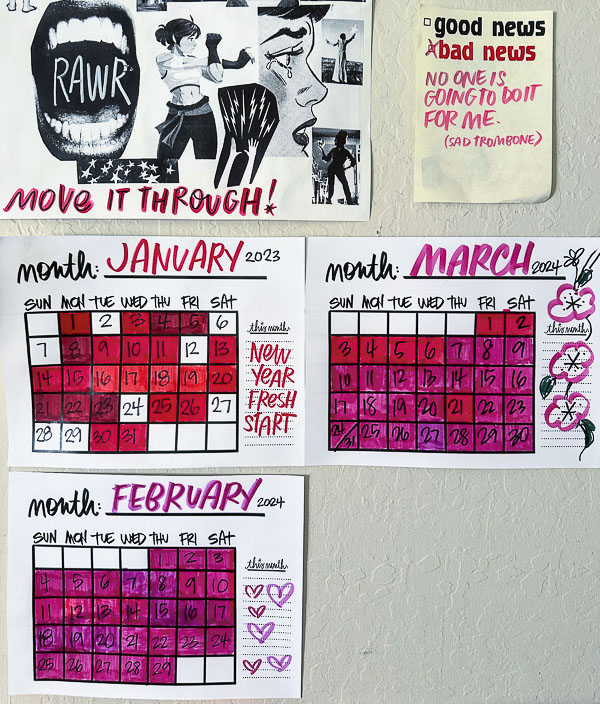 RAWR
MOVE IT THROUGH!
good news
bad news
NO ONE IS
GOING TO DO IT
FOR ME.
(SAD TROMBONE)
month: JANUARY 2023
SUN MON TUE WED THU FRI SAT
1 2 3 4 5 6
7 8 9 10 11 12 13
14 15 16 17 18 19 20
21 22 23 24 25 26 27
28 29 30 31
this month
NEW
YEAR
FRESH
START
month: MARCH 2024
SUN MON TUE WED THU FRI SAT
1 2
3 4 5 6 7 8 9
10 11 12 13 14 15 16
17 18 19 20 21 22 23
24/31 25 26 27 28 29 30
this month
month: FEBRUARY 2024
SUN MON TUE WED THU FRI SAT
1 2 3
4 5 6 7 8 9 10
11 12 13 14 15 16 17
18 19 20 21 22 23 24
25 26 27 28 29
this month